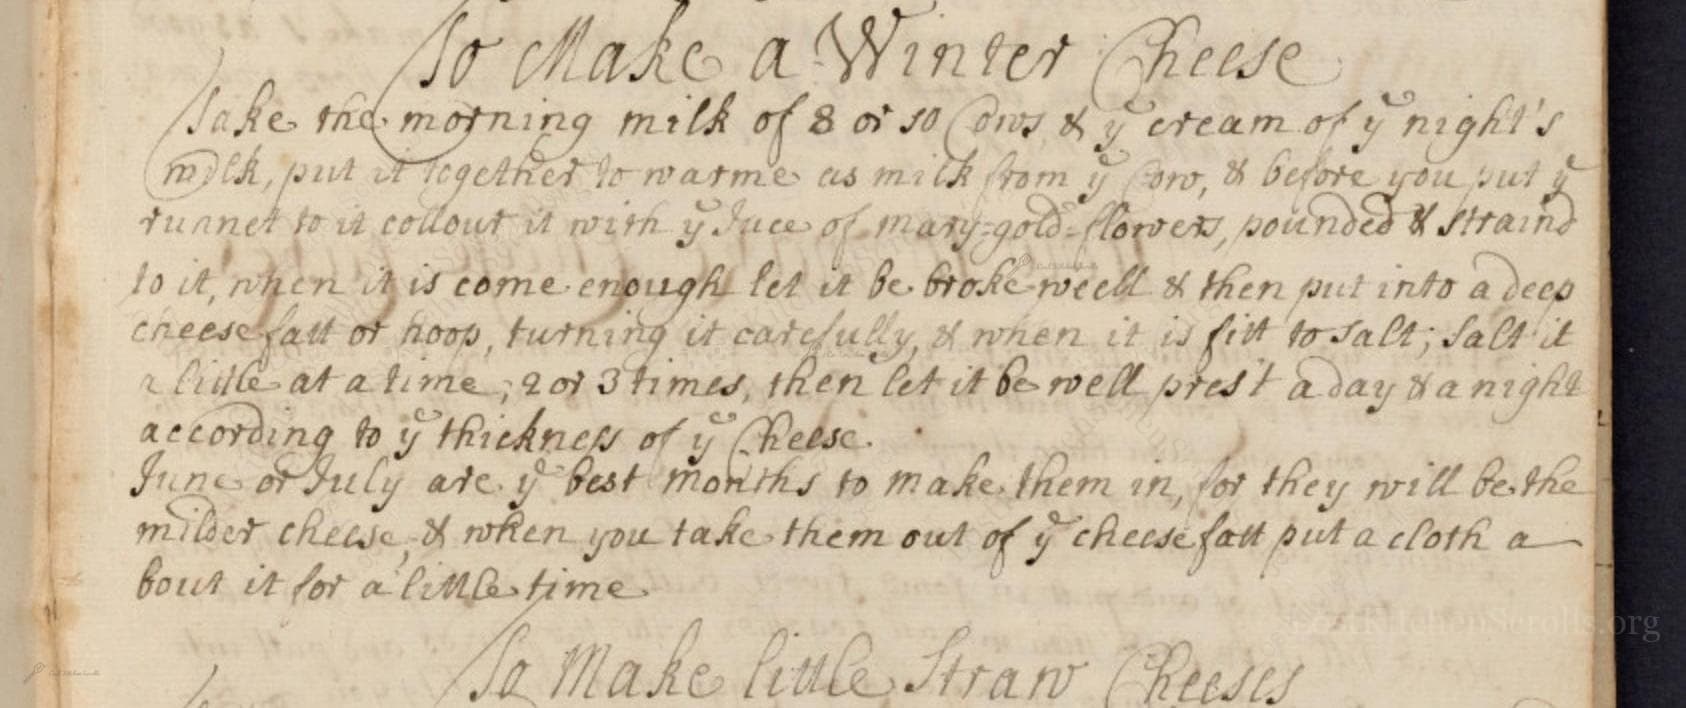 To Make a Winter Cheese
Take the morning milk of 8 or 10 Cows & yͤ cream of yͤ night's
milk, put it together to warme as milk from yͤ Cow, & before you put yͤ
runnet to it collour it with yͤ Juce of mary-gold-flowers, pounded & straind
to it, when it is come enough let it be broke weell & then put into a deep
cheesefatt or hoop, turning it carefully, & when it is fitt to salt; salt it
a little at a time, 2 or 3 times, then let it be well pres't a day & a night
according to yͤ thickness of yͤ Cheese.
June or July are yͤ best months to make them in, for they will be the
milder cheese, & when you take them out of yͤ cheesefatt put a cloth a
bout it for a little time
To Make little Straw Cheeses
KitchenScrolls.org